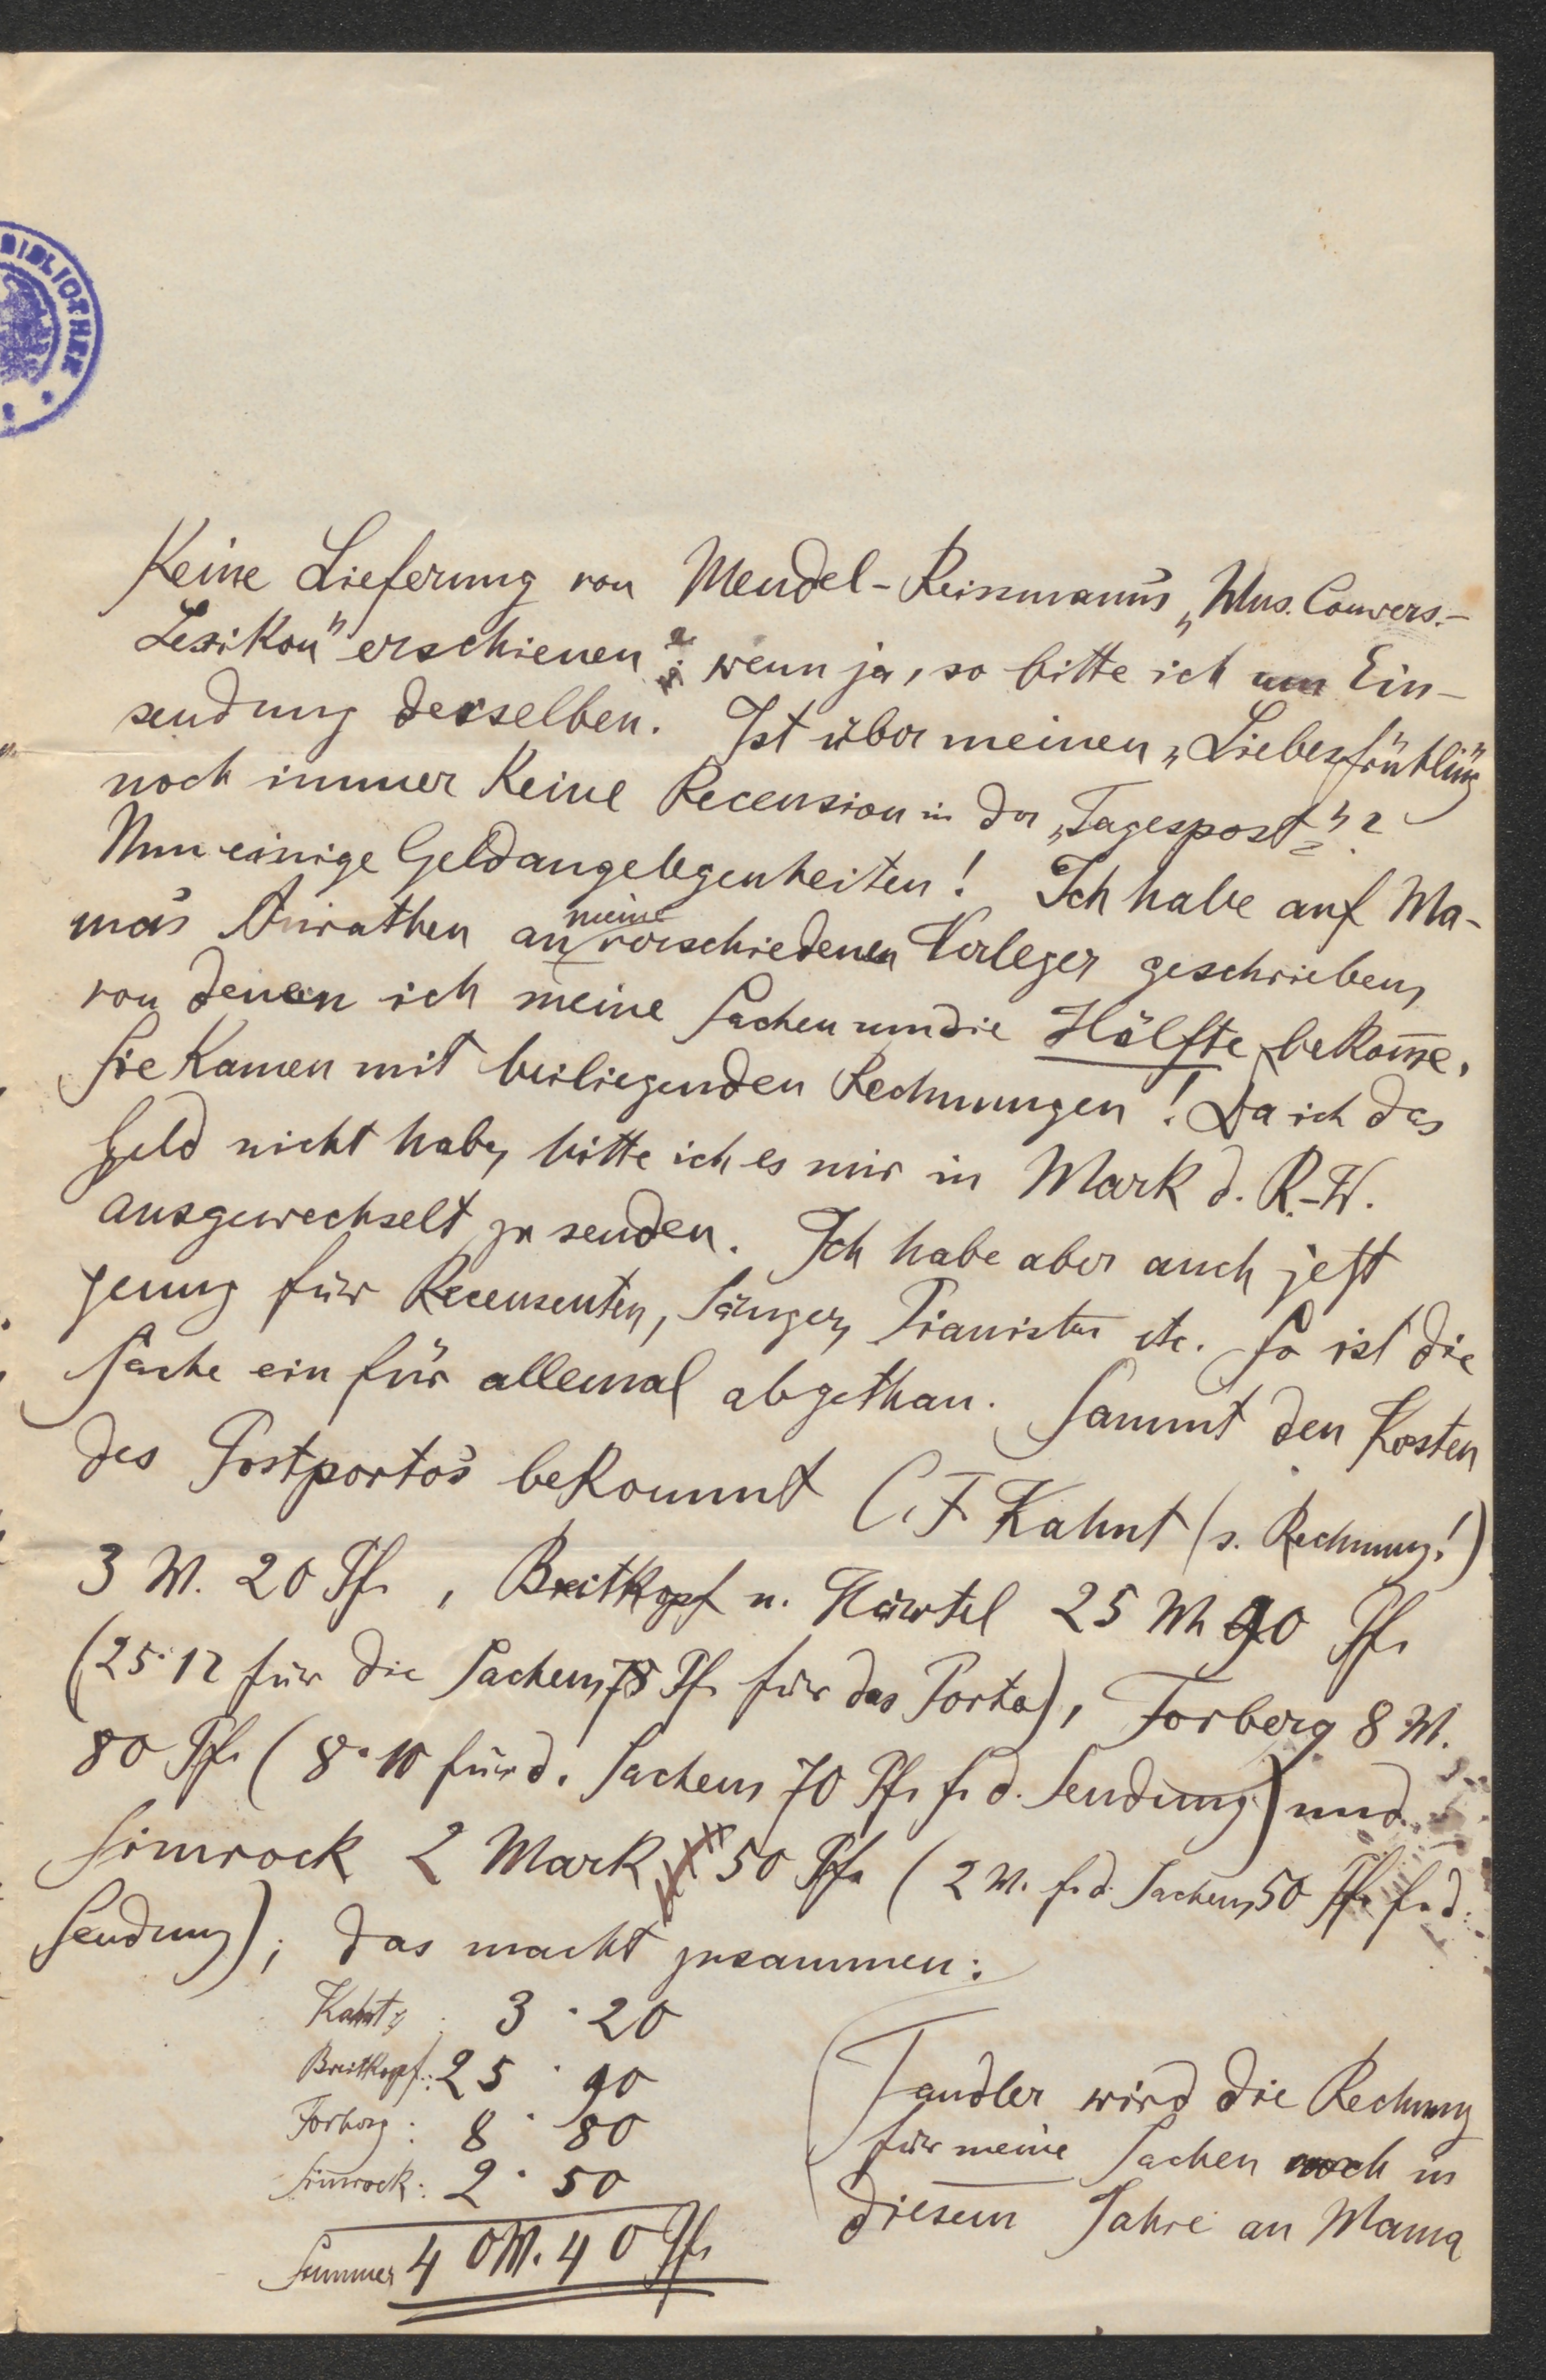 BIBLIOTHEK
Keine Lieferung von Mendel-Reissmann's „Mus. Convers.-
Lexikon" erschienen? wenn ja, so bitte ich um Ein-
sendung derselben. Ist über meinen „Liebesfrühling"
noch immer keine Recension in der „Tagespost"?
Nun einige Geldangelegenheiten! Ich habe auf Ma-
mas Anrathen an meine verschiedenen Verleger geschrieben,
von denen ich meine Sachen um die Hälfte bekom̅e.
Sie kamen mit beiliegenden Rechnungen! Da ich das
Geld nicht habe, bitte ich es mir in Mark d. R.-W.
ausgewechselt zu senden. Ich habe aber auch jetzt
genug für Recensenten, Sänger, Pianisten etc. So ist die
Sache ein für allemal abgethan. Sammt den Kosten
des Postporto's bekommt C. F. Kahnt (s. Rechnung!)
3 M. 20 Pf., Breitkopf u. Härtel 25 M 90 Pf.
(25·12 für die Sachen, 78 Pf. für das Porto), Forberg 8 M.
80 Pf. (8·10 für d. Sachen, 70 Pf. f. d. Sendung) und
Simrock 2 Mark 50 Pf. (2 M. f. d. Sachen, 50 Pf. f. d.
Sendung); das macht zusammen:
Kahnt: 3·20
Breitkopf: 25·90
Forberg: 8·80
Sim̅rock: 2·50
Summe: 40 M. 40 Pf.
Tandler wird die Rechnung
für meine Sachen noch in
diesem Jahre an Mama